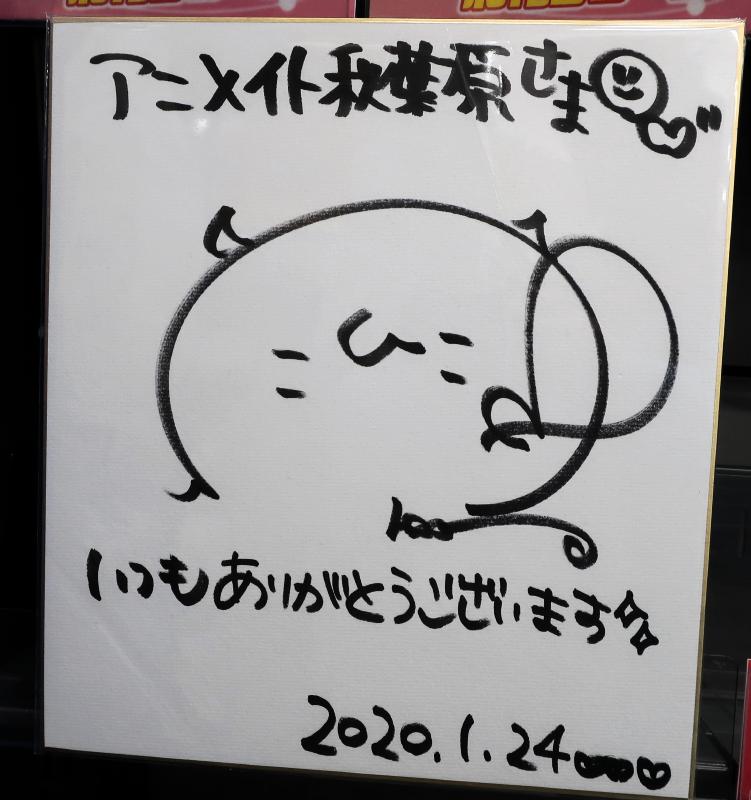 アニメイト秋葉原さま
いつもありがとうございます
2020.1.24